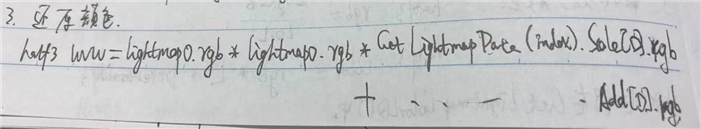 3. 还原颜色.
half3 uvw = lightmap0.rgb * lightmap0.rgb * GetLightmapData(index).Scale[0].rgb
+ · · — · Add[0].rgb